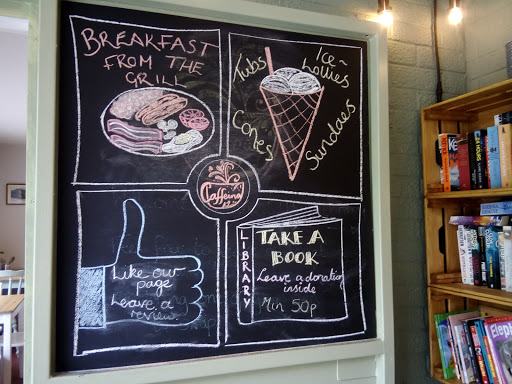 BREAKFAST
FROM THE
GRILL
Tubs
Ice-
Lollies
Cones
Sundaes
Caffeina
Like our
page
Leave a
review
LIBRARY
TAKE A
BOOK
Leave a donation
inside
Min 50p